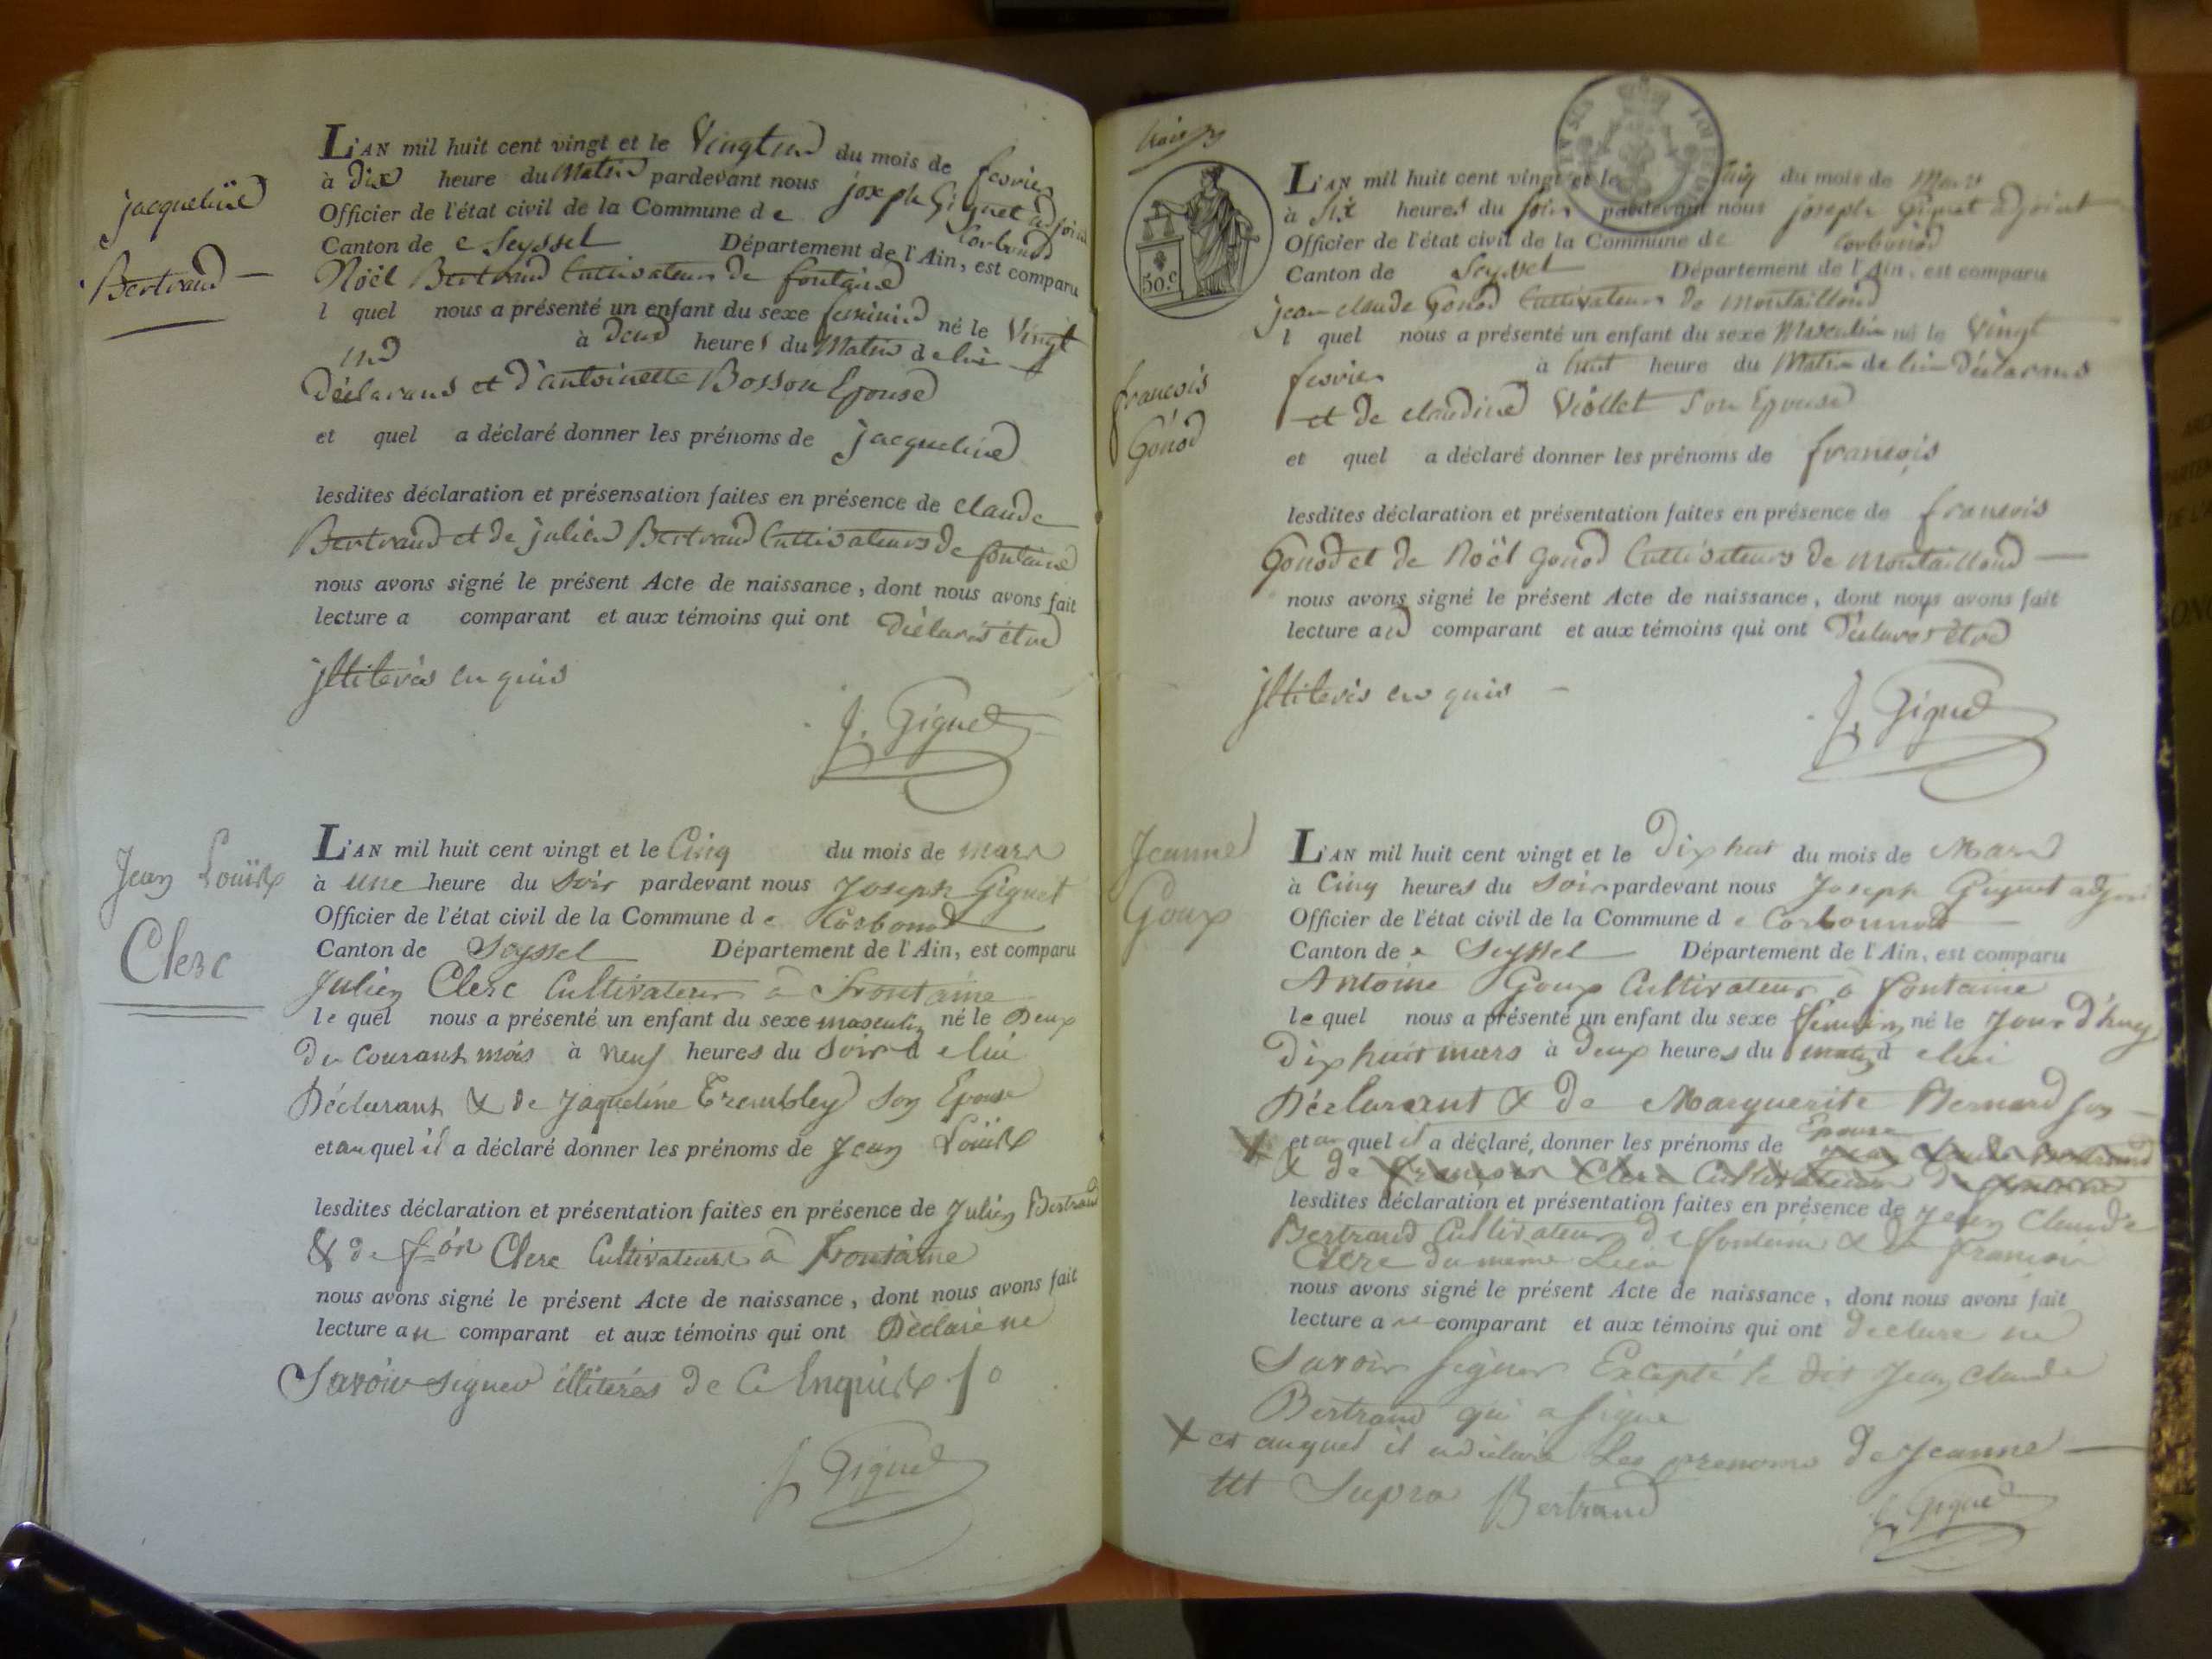 jacqueline
Bertrand
L'AN mil huit cent vingt et le Vingt un du mois de fevrier
à dix heure du Matin pardevant nous joseph Giguet adjoint
Officier de l'état civil de la Commune de Corbonod
Canton de e Seyssel Département de l'Ain, est comparu
Noël Bertrand Cultivateur de fontaine
l quel nous a présenté un enfant du sexe feminin né le Vingt
un à deux heures du Matin de lui
Déclarans et d'antoinette Bosson Epouse
et quel a déclaré donner les prénoms de jacqueline
lesdites déclaration et présensation faites en présence de claude
Bertrand et de julien Bertrand Cultivateurs de fontaine
nous avons signé le présent Acte de naissance, dont nous avons fait
lecture a comparant et aux témoins qui ont Déclarés étre
jllitevés en quis
J. Giguet
Jean Louïs
Clerc
L'AN mil huit cent vingt et le Cinq du mois de mars
à une heure du Soir pardevant nous Joseph Giguet
Officier de l'état civil de la Commune de Corbonod
Canton de Seyssel Département de l'Ain, est comparu
Julien Clerc Cultivateur à Fontaine
le quel nous a présenté un enfant du sexe masculin né le Deux
du Courant mois à neuf heures du Soir de lui
Déclarant & de Jaqueline Trembley Son Epouse
et au quel il a déclaré donner les prénoms de Jean Louïs
lesdites déclaration et présentation faites en présence de Julien Bertrand
& de f=ois Clerc Cultivateurs à Fontaine
nous avons signé le présent Acte de naissance, dont nous avons fait
lecture au comparant et aux témoins qui ont Déclaré ne
Savoir signer illiterés de Ce Enquis
J. Giguet
50.c
françois
Gonod
L'AN mil huit cent vingt et le du mois de Mars
à Six heures du Soir pardevant nous joseph Giguet adjoint
Officier de l'état civil de la Commune de Corbonod
Canton de Seyssel Département de l'Ain, est comparu
jean claude Gonod Cultivateur de montailloud
l quel nous a présenté un enfant du sexe Masculin né le Vingt
fevrier à huit heure du Matin de lui Déclarans
et de claudine Viollet Son Epouse
et quel a déclaré donner les prénoms de françois
lesdites déclaration et présentation faites en présence de francois
Gonod et de Noël Gonod Cultivateurs de montailloud
nous avons signé le présent Acte de naissance, dont nous avons fait
lecture au comparant et aux témoins qui ont Déclarés étre
jllitevés en quis
J. Giguet
Jeanne
Goux
L'AN mil huit cent vingt et le Dix huit du mois de Mars
à Cinq heures du Soir pardevant nous Joseph Giguet adjoint
Officier de l'état civil de la Commune de Corbonnod
Canton de e Seyssel Département de l'Ain, est comparu
Antoine Goux Cultivateur à fontaine
le quel nous a présenté un enfant du sexe féminin né le Jour d'huy
Dix huit mars à Deux heures du matin de lui
Déclarant & de Marguerite Bernard son
Epouse
X et au quel il a déclaré, donner les prénoms de Jean Claude Bertrand
& de françois Clerc Cultivateur de fontaine
lesdites déclaration et présentation faites en présence de Jean Claude
Bertrand Cultivateur de fontaine & de françois
Clerc du même Lieu
nous avons signé le présent Acte de naissance, dont nous avons fait
lecture au comparant et aux témoins qui ont déclaré ne
Savoir signer Excepté le dit Jean Claude
Bertrand qui a signé
X et auquel il a déclaré Les prenoms de Jeanne
Ut Supra Bertrand
J. Giguet